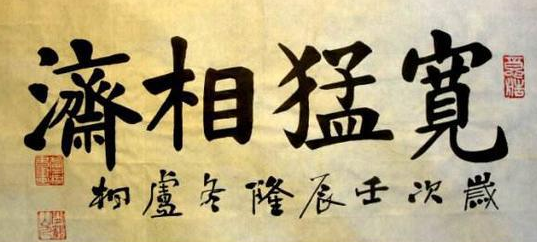 寬猛相濟
歲次壬辰隆冬盧桐